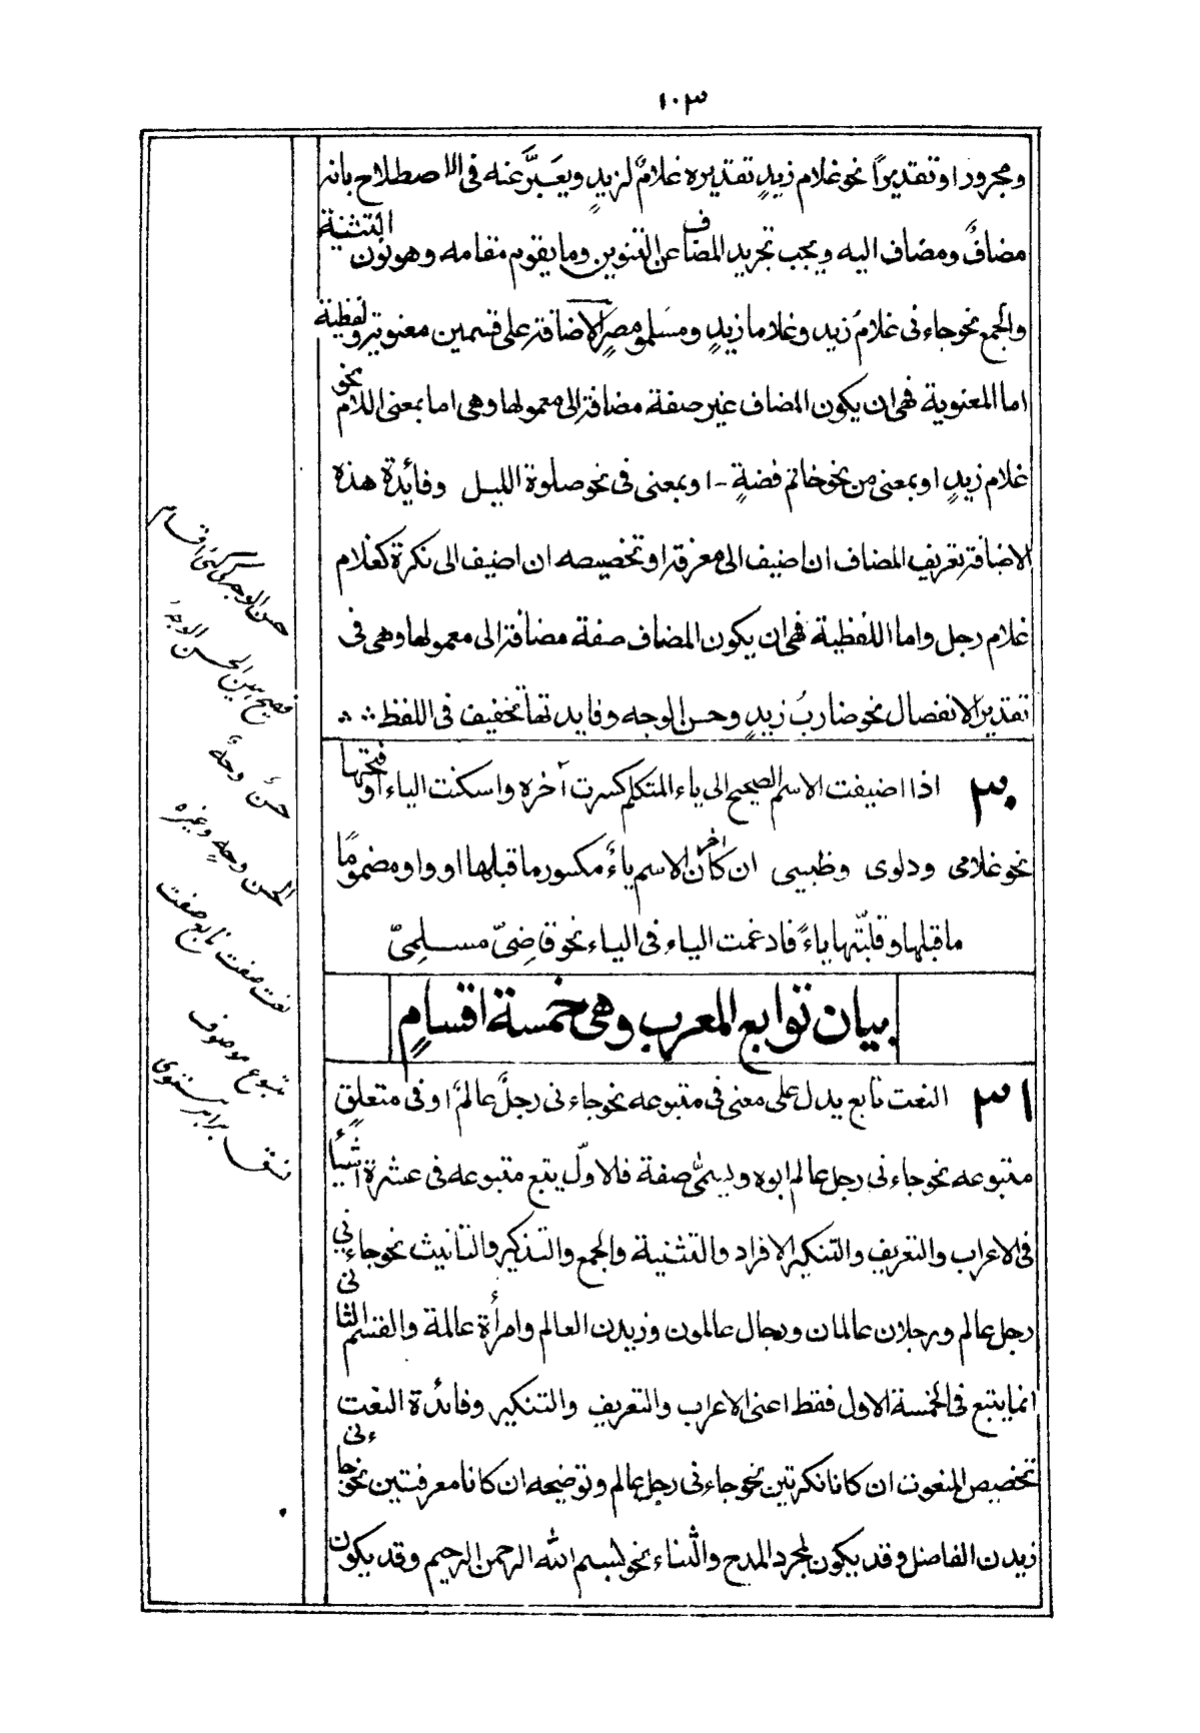 ۱۰۳
ومجرور او تقديراً نحو غلام زيدٍ تقديره غلامٌ لزيدٍ ويعبَّر عنه فى الاصطلاح بانه
مضافٌ ومضاف اليه ويجب تجريد المضاف عن التنوين وما يقوم مقامه وهو نون التثنية
والجمع نحو جاءنى غلامُ زيد وغلاما زيدٍ ومسلمو مصرٍ الاضافة على قسمين معنوية ولفظية
اما المعنوية فهى ان يكون المضاف غير صفة مضافة الى معمولها وهى اما بمعنى اللام نحو
غلام زيدٍ او بمعنى من نحو خاتم فضةٍ - او بمعنى فى نحو صلوة الليل وفائدة هذه
الاضافة تعريف المضاف ان اضيف الى معرفة او تخصيصه ان اضيف الى نكرة كغلام
غلام رجل واما اللفظية فهى ان يكون المضاف صفة مضافة الى معمولها وهى فى
تقدير الانفصال نحو ضاربُ زيدٍ وحسن الوجه وفايدتها تخفيف فى اللفظ
۳۰ اذا اضيفت الاسم الصحيح الى ياء المتكلم كسرت آخره واسكنت الياء او فتحتها
نحو غلامى ودلوى وظبيى ان كان آخر الاسم ياءً مكسور ما قبلها او واو مضموما
ما قبلها وقلبّتها ياءً فادغمت الياء فى الياء نحو قاضِىّ مسلمِىّ
بيان توابع المعرب وهى خمسة اقسامٍ
۳۱ النعت تابع يدل على معنى فى متبوعه نحو جاءنى رجلٌ عالمٌ او فى متعلقٍ
متبوعه نحو جاءنى رجل عالم ابوه ويسمّٰى صفة فالاوّل يتبع متبوعه فى عشرة اشياءٍ
فى الاعراب والتعريف والتنكير الافراد والتثنية والجمع والتذكير والتانيث نحو جاءنى
رجل عالم ورجلان عالمان ورجال عالمون وزيدن العالم وامرأة عالمة والقسم الثانى
انما يتبع فى الخمسة الاول فقط اعنى الاعراب والتعريف والتنكير وفائدة النعت
تخصيص المنعوت ان كانا نكرتين نحو جاءنى رجل عالم وتوضيحه ان كانا معرفتين نحو جاءنى
زيدن الفاضل وقد يكون لمجرد المدح والثناء نحو بسم الله الرحمن الرحيم وقد يكون
حسن الوجه كى كئى اقسام
فصيح ہیں الحسن الوجہ
حسنٌ وجهٌ
الحسن وجهٍ وغيره
نعت صفت تابع صفت
متبوع موصوف